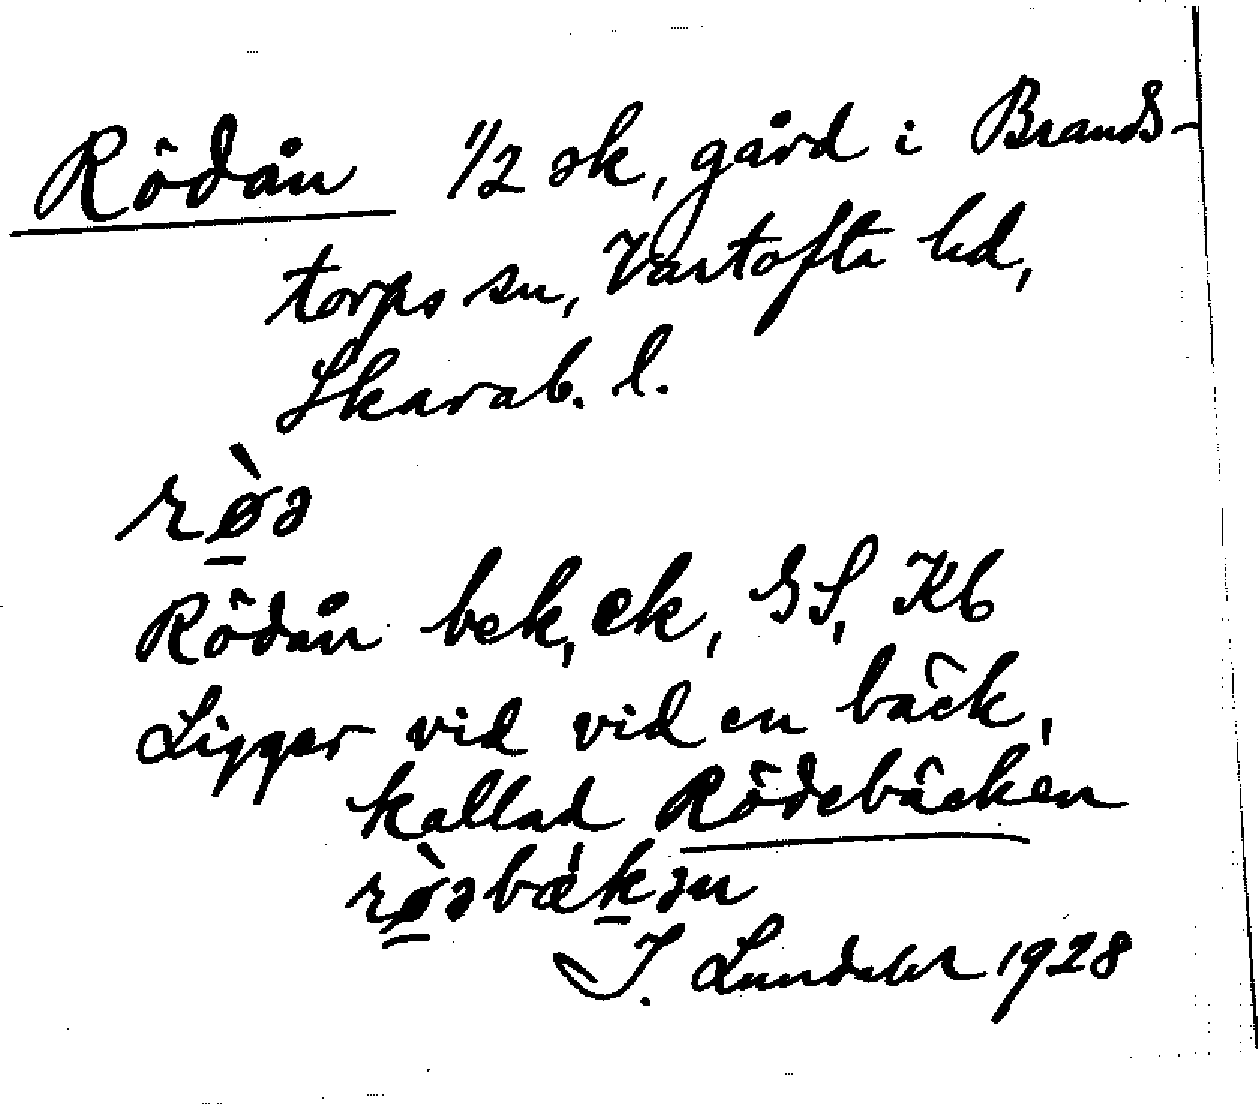 Rödån 1/2 sk, gård i Brands-
torps sn, Vartofta hd,
Skarab. l.
rø̱̀ə
Rödån bek, ek, GS, Kb
Ligger vid vid en bäck,
kallad Rödebäcken
rø̱̀əbæ̀ḵən
J. Lundahl 1928